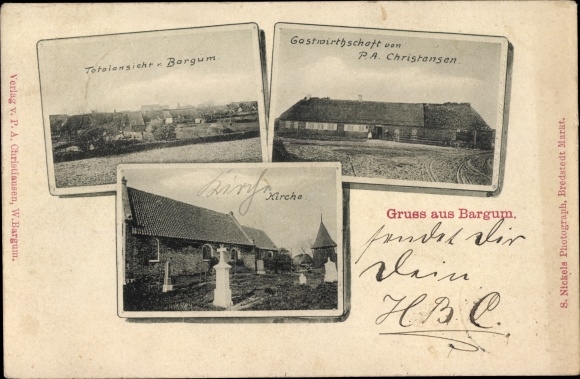 Totalansicht v. Bargum.
Gastwirthschaft von
P. A. Christansen.
Kirche
Kirche
Gruss aus Bargum.
sendet Dir
Dein
HBC.
Verlag v. P. A. Chrisdausen, W. Bargum.
S. Nickels Photograph, Bredstedt Markt.